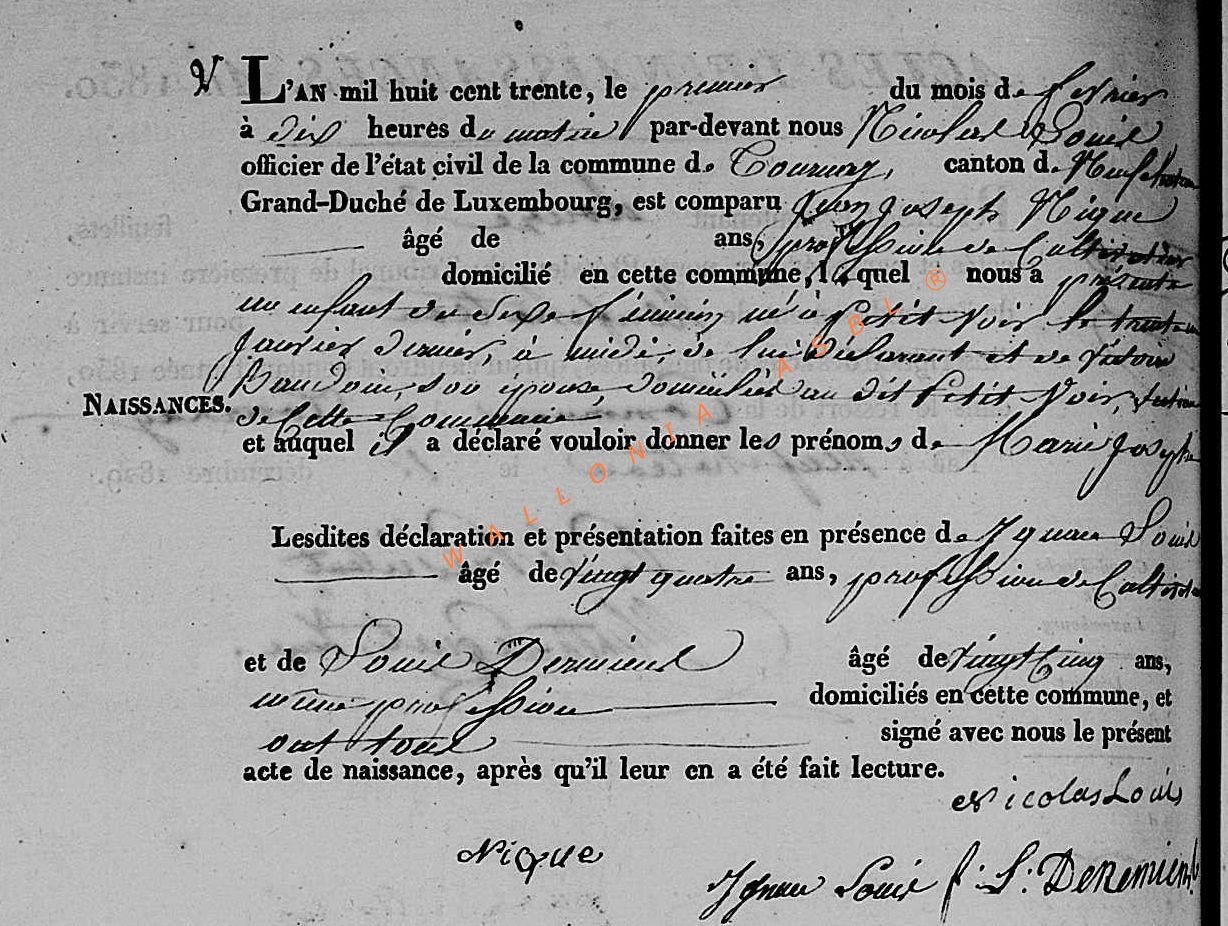 V L'AN mil huit cent trente, le premier du mois de fevrier
à dix heures du matin par-devant nous Nicolas Louis
officier de l'état civil de la commune de Tournay, canton de Neufchateau
Grand-Duché de Luxembourg, est comparu Jean Joseph Nique
âgé de ans, profession de Cultivateur
domicilié en cette commune, le quel nous a présenté
un enfant du sexe féminin né à Petit Voir le trente un
Janvier dernier, à midi, de lui Déclarant et de Victoire
Baudoin, son épouse, domiciliés au dit Petit Voir, section
NAISSANCES.
de Cette Commune
et auquel il a déclaré vouloir donner les prénoms de Marie Joseph
Lesdites déclaration et présentation faites en présence de Ignace Louis
âgé de vingt quatre ans, profession de Cultivateur
et de Louis Deremiens âgé de vingt Cinq ans,
même profession domiciliés en cette commune, et
ont tous signé avec nous le présent
acte de naissance, après qu'il leur en a été fait lecture.
Nicolas Louis
Nique
Ignace Louis f: L: Deremiens
WALLONIA ASBL ®